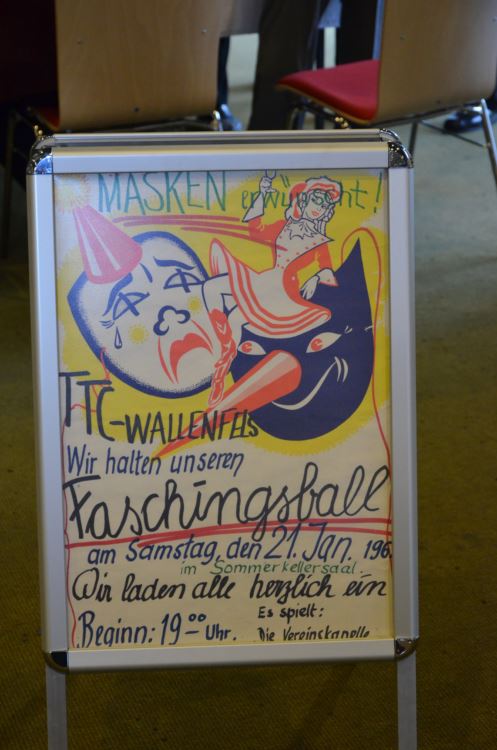 MASKEN erwünscht!
TTC-WALLENFELS
Wir halten unseren
Faschingsball
am Samstag, den 21. Jan. 196
im Sommerkellersaal.
Wir laden alle herzlich ein
Beginn: 19⁰⁰ Uhr.
Es spielt:
Die Vereinskapelle